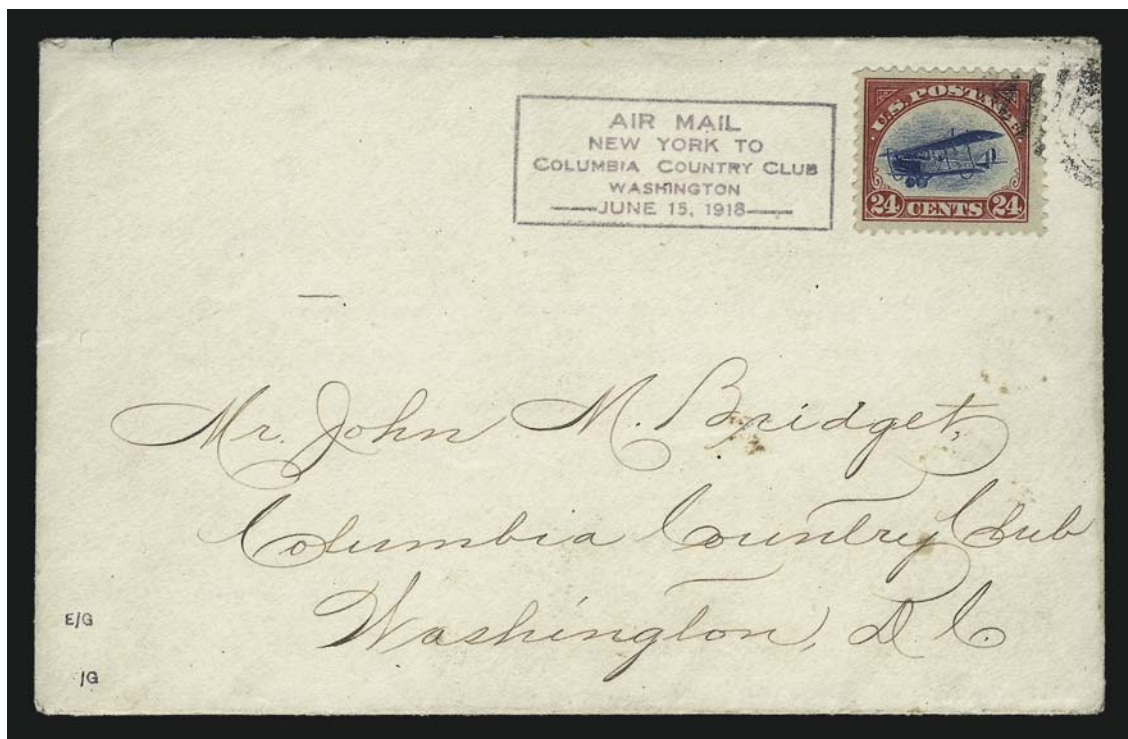 AIR MAIL
NEW YORK TO
COLUMBIA COUNTRY CLUB
WASHINGTON
JUNE 15, 1918
U.S. POSTAGE
24 CENTS 24
Mr. John M. Bridget,
Columbia Country Club
Washington, D.C.
E/G
/G